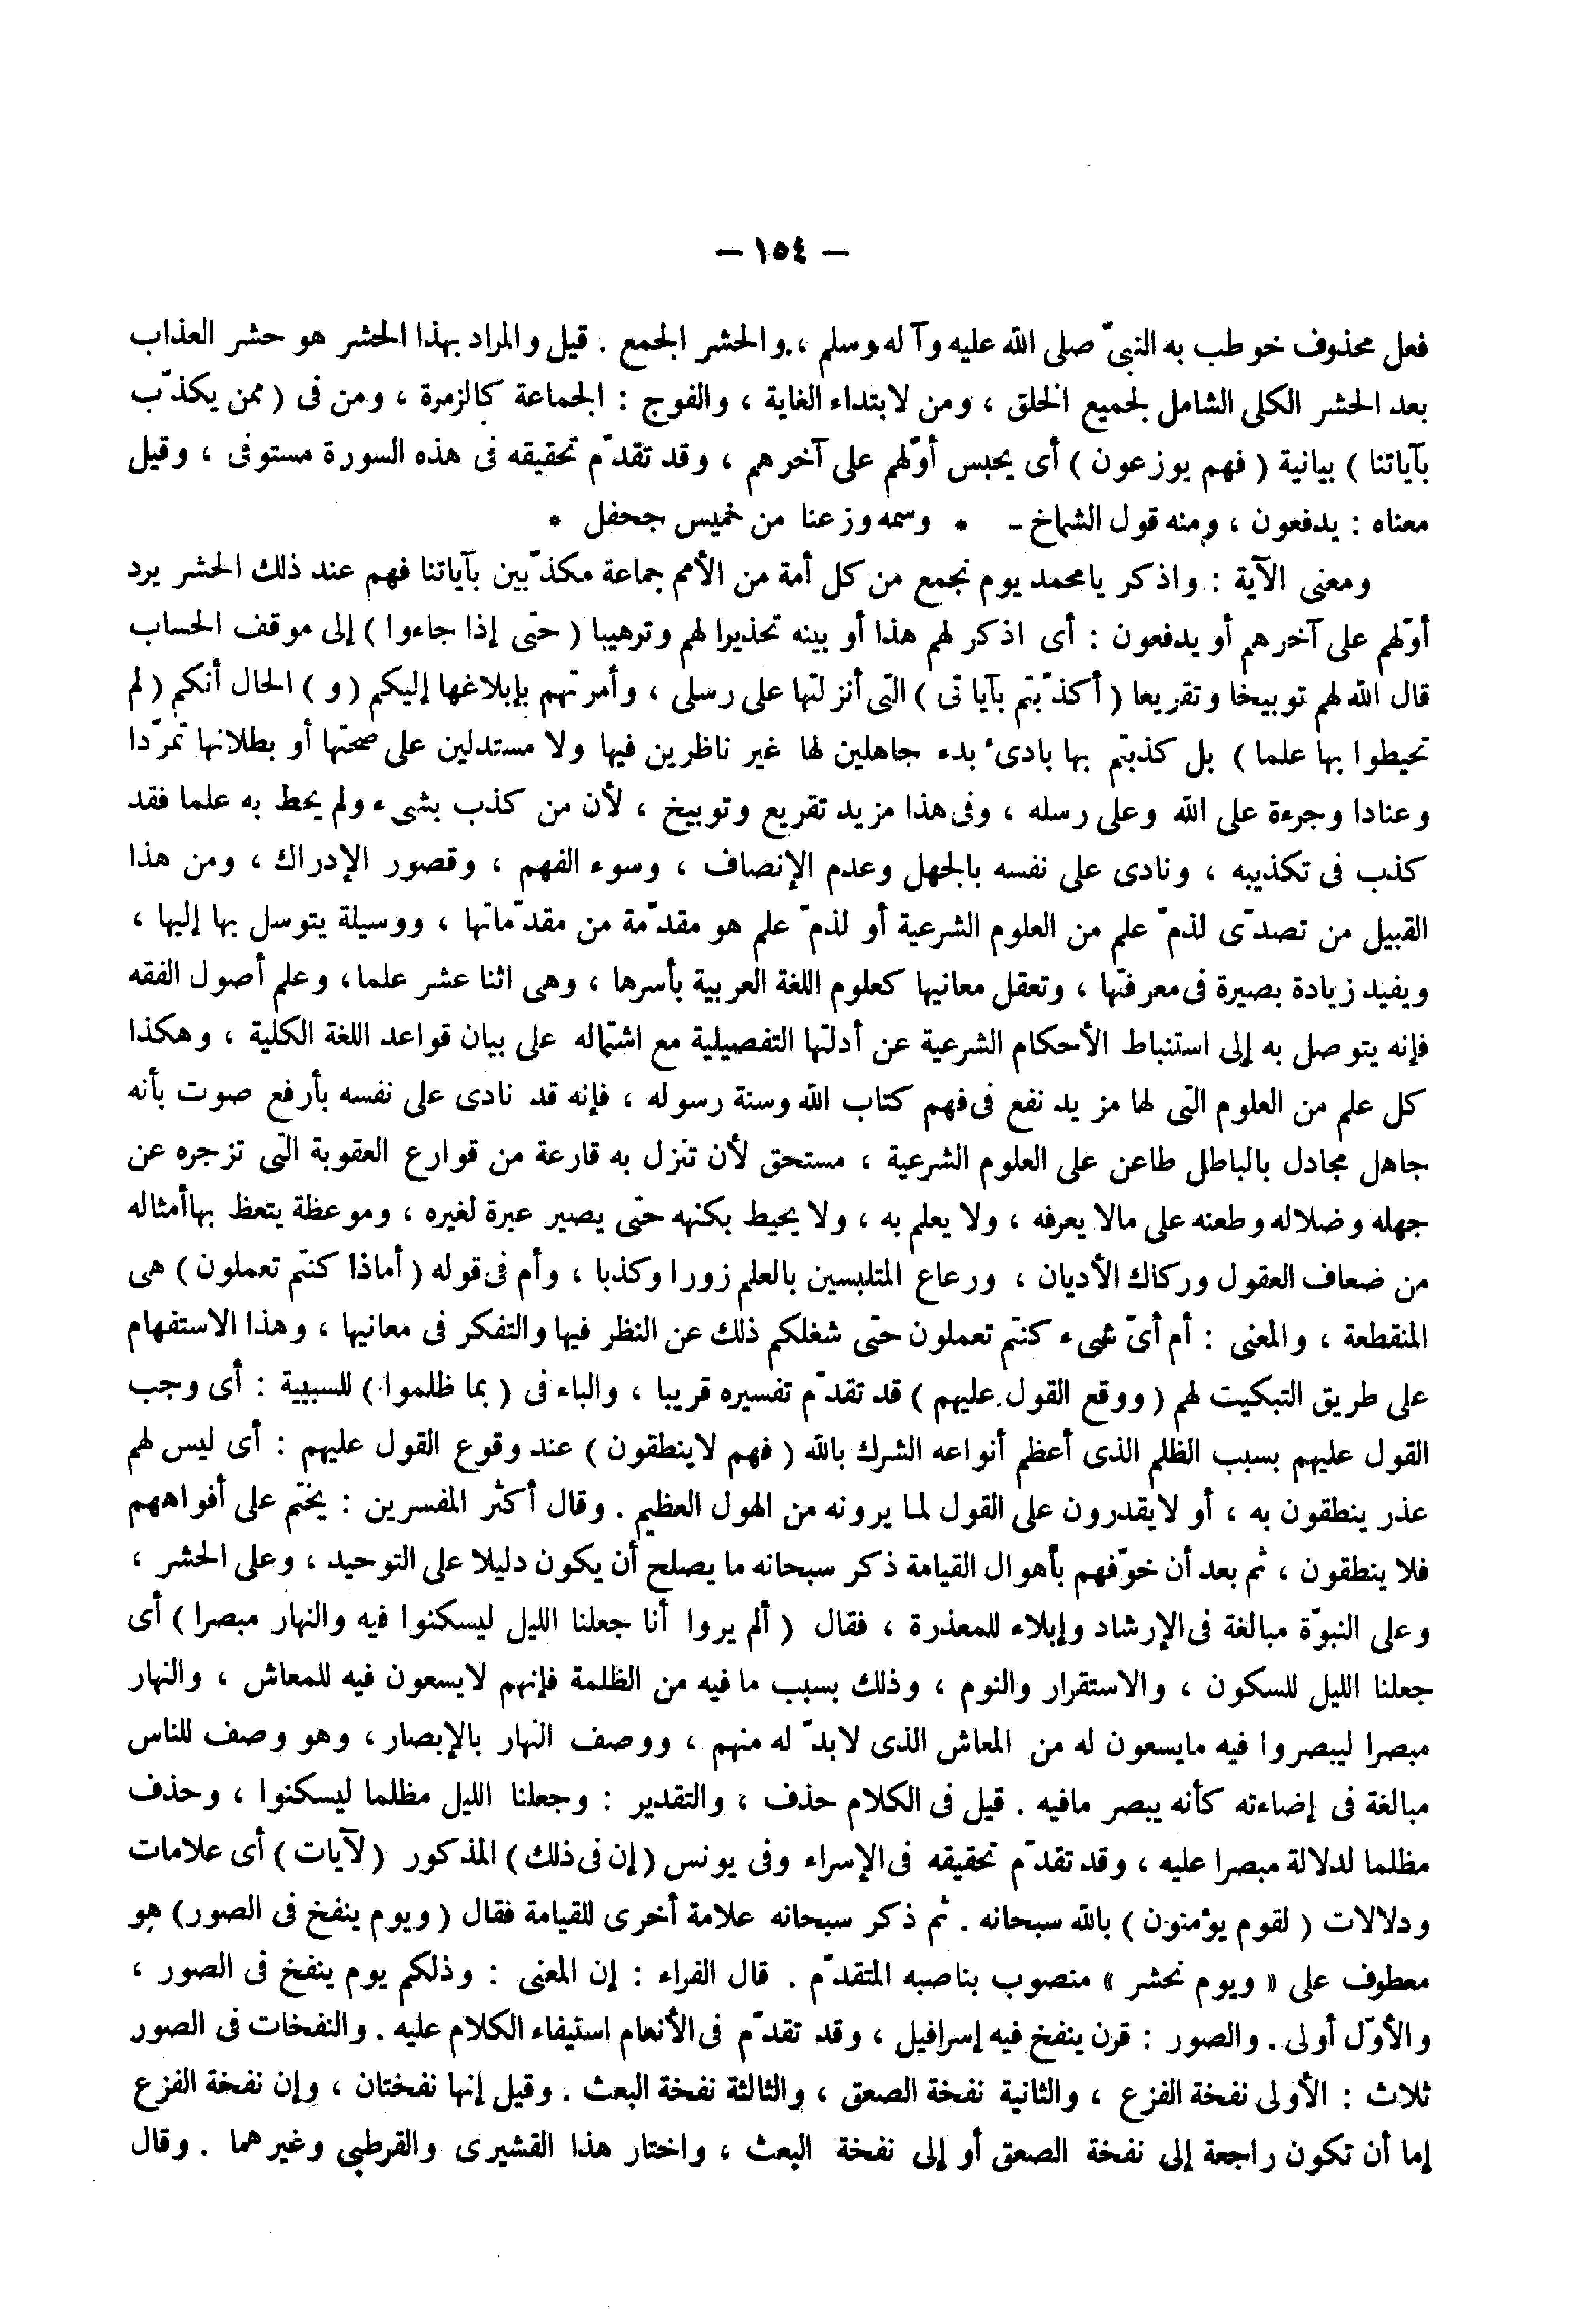 — ١٥٤ —
فعل محذوف خوطب به النبىّ صلى الله عليه وآله وسلم ، والحشر الجمع . قيل والمراد بهذا الحشر هو حشر العذاب
بعد الحشر الكلى الشامل لجميع الخلق ، ومن لابتداء الغاية ، والفوج : الجماعة كالزمرة ، ومن فى ( ممن يكذّب
بآياتنا ) بيانية ( فهم يوزعون ) أى يحبس أوّلهم على آخرهم ، وقد تقدّم تحقيقه فى هذه السورة مستوفى ، وقيل
معناه : يدفعون ، ومنه قول الشماخ - * وسمه وزعنا من خميس جحفل *
ومعنى الآية : واذكر يامحمد يوم نجمع من كل أمة من الأمم جماعة مكذّبين بآياتنا فهم عند ذلك الحشر يرد
أوّلهم على آخرهم أو يدفعون : أى اذكر لهم هذا أو بينه تحذيرا لهم وترهيبا ( حتى إذا جاءوا ) إلى موقف الحساب
قال الله لهم توبيخا وتقريعا ( أكذّبتم بآياتى ) التى أنزلتها على رسلى ، وأمرتهم بإبلاغها إليكم ( و ) الحال أنكم ( لم
تحيطوا بها علما ) بل كذبتم بها بادىء بدء جاهلين لها غير ناظرين فيها ولا مستدلين على صحتها أو بطلانها تمرّدا
وعنادا وجرءة على الله وعلى رسله ، وفى هذا مزيد تقريع وتوبيخ ، لأن من كذب بشىء ولم يحط به علما فقد
كذب فى تكذيبه ، ونادى على نفسه بالجهل وعدم الإنصاف ، وسوء الفهم ، وقصور الإدراك ، ومن هذا
القبيل من تصدّى لذمّ علم من العلوم الشرعية أو لذمّ علم هو مقدّمة من مقدّماتها ، ووسيلة يتوسل بها إليها ،
ويفيد زيادة بصيرة فى معرفتها ، وتعقل معانيها كعلوم اللغة العربية بأسرها ، وهى اثنا عشر علما ، وعلم أصول الفقه
فإنه يتوصل به إلى استنباط الأحكام الشرعية عن أدلتها التفصيلية مع اشتماله على بيان قواعد اللغة الكلية ، وهكذا
كل علم من العلوم التى لها مزيد نفع فى فهم كتاب الله وسنة رسوله ، فإنه قد نادى على نفسه بأرفع صوت بأنه
جاهل مجادل بالباطل طاعن على العلوم الشرعية ، مستحق لأن تنزل به قارعة من قوارع العقوبة التى تزجره عن
جهله وضلاله وطعنه على مالا يعرفه ، ولا يعلم به ، ولا يحيط بكنهه حتى يصير عبرة لغيره ، وموعظة يتعظ بها أمثاله
من ضعاف العقول وركاك الأديان ، ورعاع المتلبسين بالعلم زورا وكذبا ، وأم فى قوله ( أماذا كنتم تعملون ) هى
المنقطعة ، والمعنى : أم أىّ شىء كنتم تعملون حتى شغلكم ذلك عن النظر فيها والتفكر فى معانيها ، وهذا الاستفهام
على طريق التبكيت لهم ( ووقع القول عليهم ) قد تقدّم تفسيره قريبا ، والباء فى ( بما ظلموا ) للسببية : أى وجب
القول عليهم بسبب الظلم الذى أعظم أنواعه الشرك بالله ( فهم لاينطقون ) عند وقوع القول عليهم : أى ليس لهم
عذر ينطقون به ، أو لايقدرون على القول لما يرونه من الهول العظيم . وقال أكثر المفسرين : يختم على أفواههم
فلا ينطقون ، ثم بعد أن خوّفهم بأهوال القيامة ذكر سبحانه ما يصلح أن يكون دليلا على التوحيد ، وعلى الحشر ،
وعلى النبوّة مبالغة فى الإرشاد وإبلاء للمعذرة ، فقال ( ألم يروا أنا جعلنا الليل ليسكنوا فيه والنهار مبصرا ) أى
جعلنا الليل للسكون ، والاستقرار والنوم ، وذلك بسبب ما فيه من الظلمة فإنهم لايسعون فيه للمعاش ، والنهار
مبصرا ليبصروا فيه مايسعون له من المعاش الذى لابدّ له منهم ، ووصف النهار بالإبصار ، وهو وصف للناس
مبالغة فى إضاءته كأنه يبصر مافيه . قيل فى الكلام حذف ، والتقدير : وجعلنا الليل مظلما ليسكنوا ، وحذف
مظلما لدلالة مبصرا عليه ، وقد تقدّم تحقيقه فى الإسراء وفى يونس ( إن فى ذلك ) المذكور ( لآيات ) أى علامات
ودلالات ( لقوم يؤمنون ) بالله سبحانه . ثم ذكر سبحانه علامة أخرى للقيامة فقال ( ويوم ينفخ فى الصور ) هو
معطوف على « ويوم نحشر » منصوب بناصبه المتقدّم . قال الفراء : إن المعنى : وذلكم يوم ينفخ فى الصور ،
والأوّل أولى . والصور : قرن ينفخ فيه إسرافيل ، وقد تقدّم فى الأنعام استيفاء الكلام عليه . والنفخات فى الصور
ثلاث : الأولى نفخة الفزع ، والثانية نفخة الصعق ، والثالثة نفخة البعث . وقيل إنها نفختان ، وإن نفخة الفزع
إما أن تكون راجعة إلى نفخة الصعق أو إلى نفخة البعث ، واختار هذا القشيرى والقرطبي وغيرهما . وقال